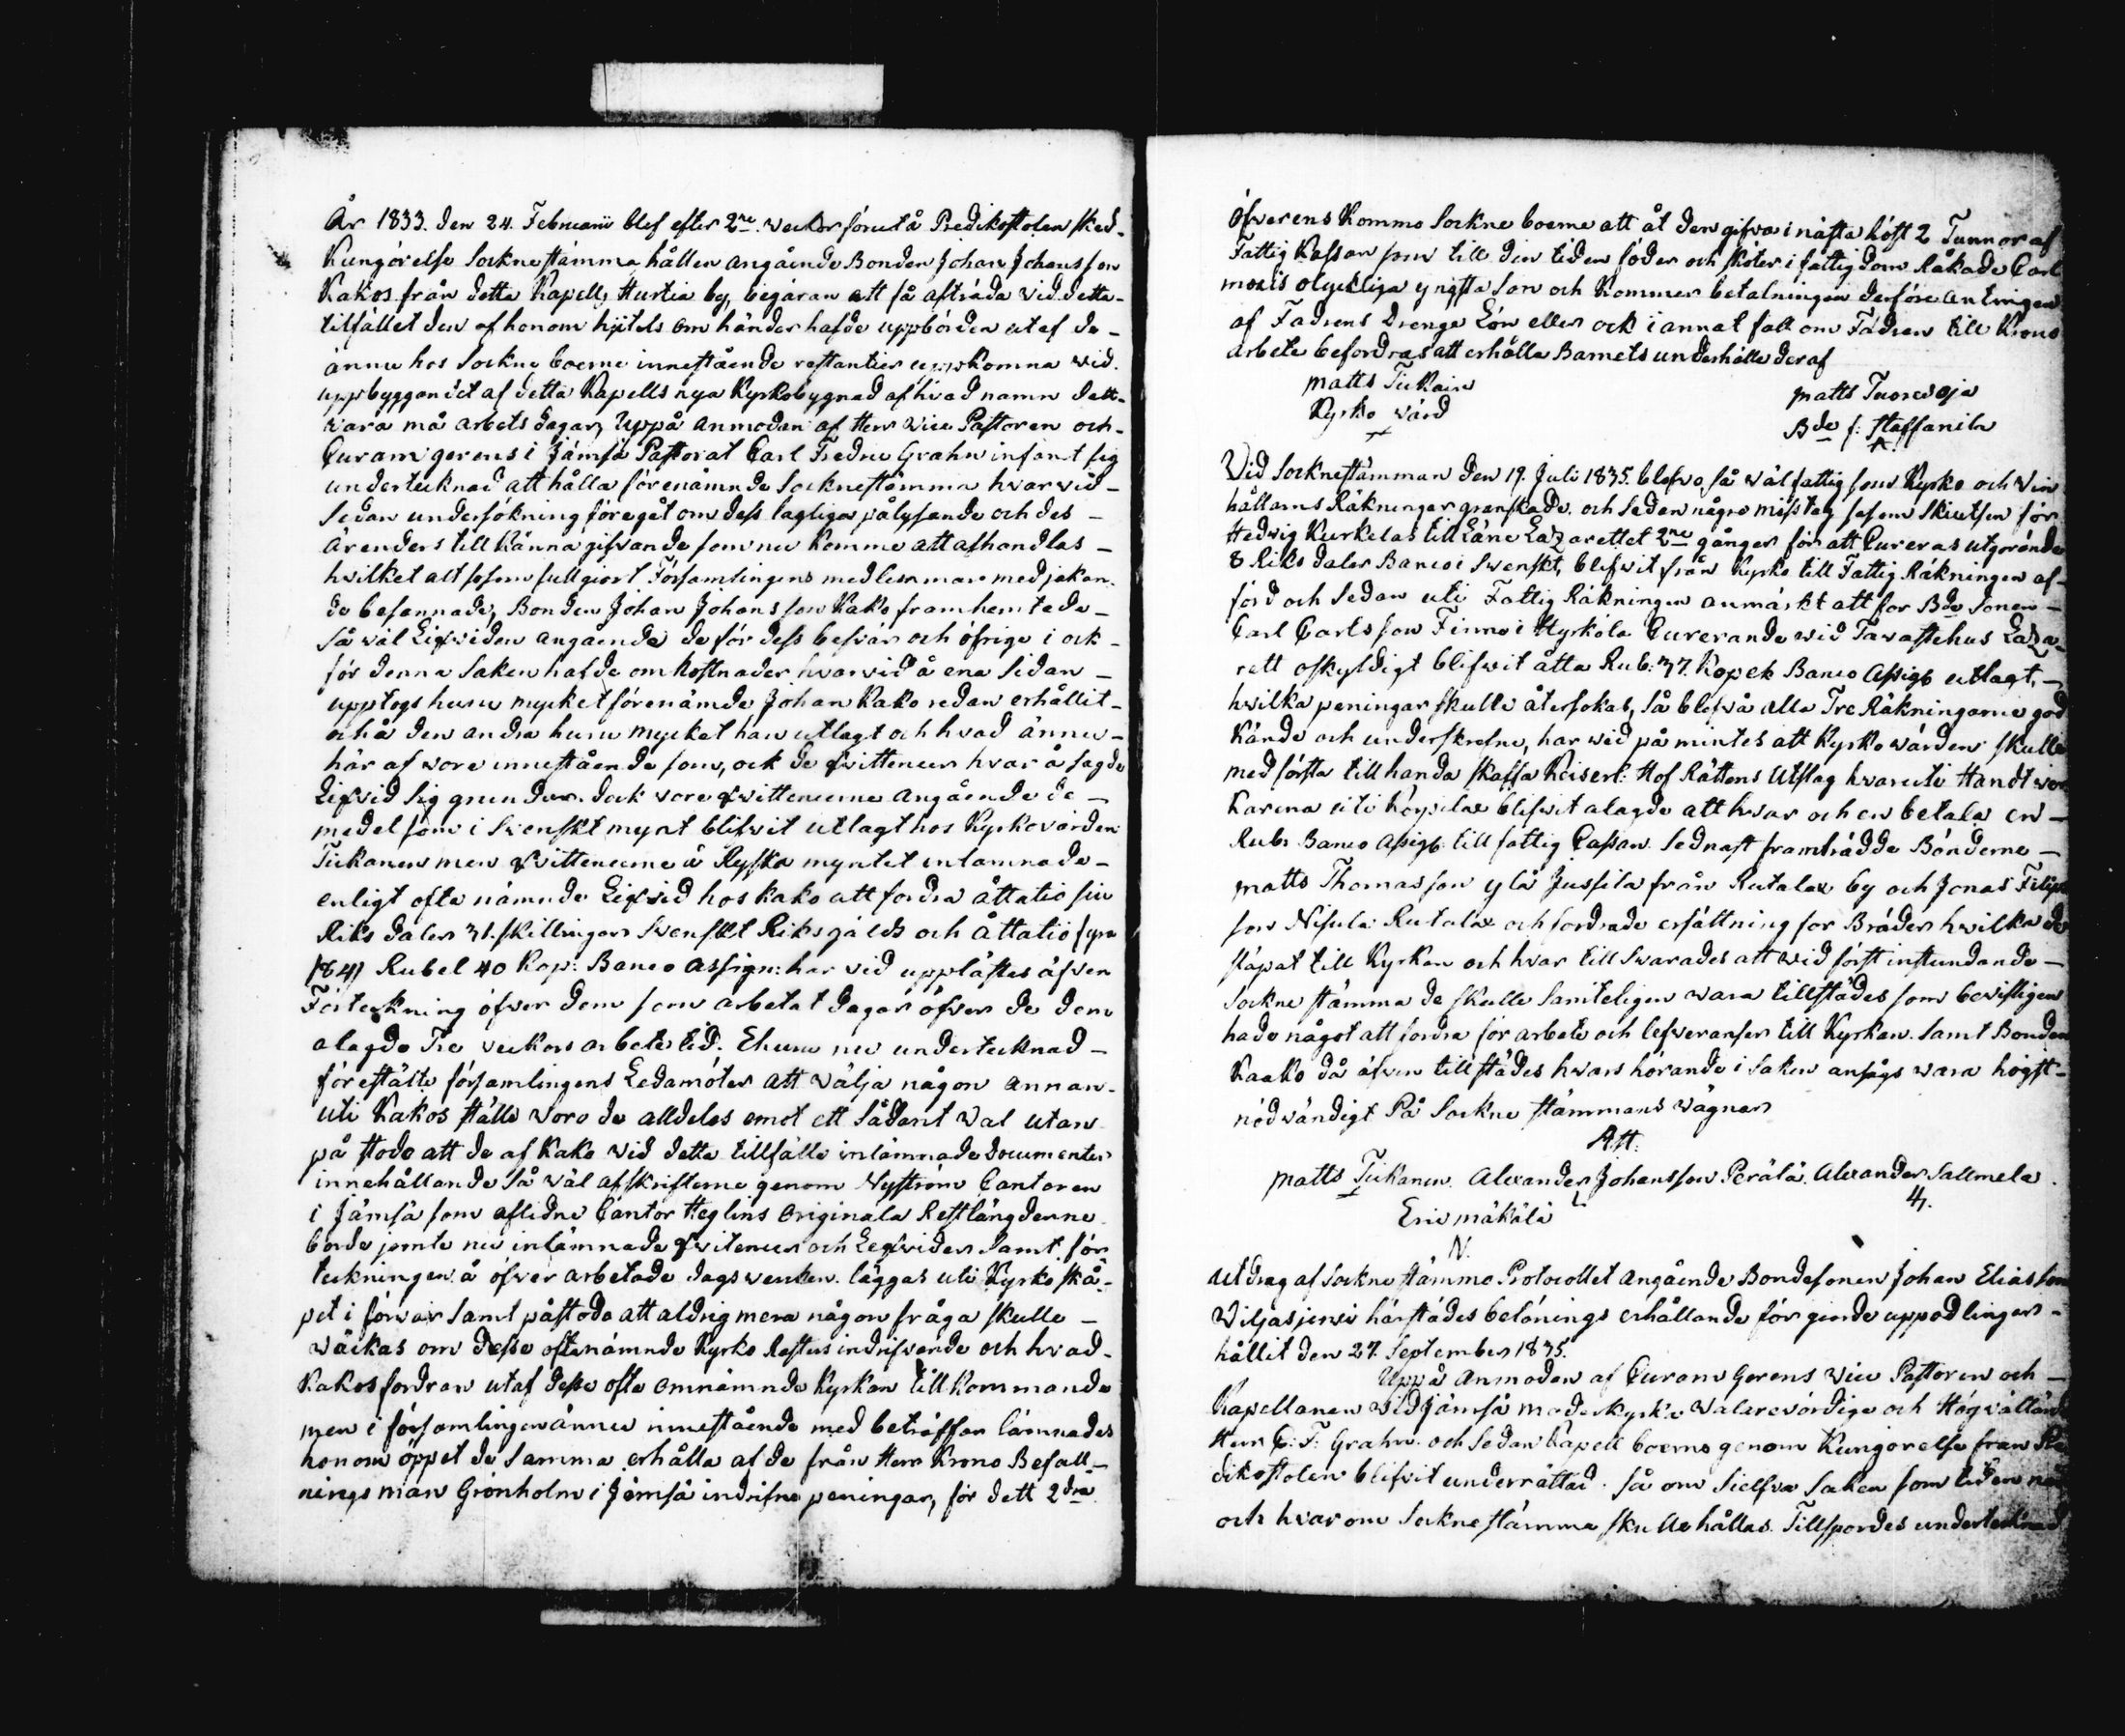 År 1833. den 24. Februarii blef efter 2ne. veckor förut å Predikostolen sked-
Kungörelse Sockne stämma hållen angående Bonden Johan Johansson
Kakos från detta Kapell, Hurtia by, begäran att få afträda vid detta-
tilfället den af honom hjitels om händer hafde uppbörden utaf de-
ännu hos Sockne boerne innestående restantier uppkomna vid.
uppbyggandet af detta Kapells nya Kyrkobygnad af hvad namn dett-
vara må arbets dagar, Uppå anmodan af Herr Vice Pastoren och-
Curam gerens i Jämsä Pastorat Carl Fredric Grahn infant sig
undertecknad att hålla förenämnde Socknestämma hvarvid-
sedan undersökning föregåt om dess lagliga pålysande och des-
ärenders till känna gifvande som nu komme att afhandlas-
hvilket alt såsom fullgiort Församlingens medlemmar med jakan-
de besannade, Bonden Johan Johansson Kako framhemtade-
så väl Liqviden angående de för dess besvär och öfrige i ock-
för denna saken hafde omkostnader hvarvid å ena sidan-
upptogs huru mycket förenämde Johan Kako redan erhållit-
och å den andra huru mycket han utlagt och hvad ännu-
här af vore innestående som, ock de qvittencer hvar å sagde
Liqvid sig grundar. dock vore qvittencerne angående de-
medel som i Svenskt mynt blifvit utlagt hos Kyrkovärden
Tiikanen men qvittencerne å Ryska myntet inlamnade-
enligt ofta nämnde Liqvid hos Kako att fordra åttatio siu
Riks daler 31. skillingar Svenskt Riksgälds och Åttatio fyra
/84/ Rubel 40 Kop: Banco Assign: har vid upplästes äfven
Förteckning öfver dem som arbetat dagar öfver de dem
alagde Tre veckors arbets tid. Ehuru nu undertecknad-
förestälte församlingens Ledamöter att välja någon annan-
uti Kakos ställe voro de alldeles emot ett sådant val utan
på stodo att de af Kako vid detta tillfälle inlämnade Documenter
innehållande så väl afskrifterne genom Nyström Cantoren
i Jämsä som aflidne Cantor Heglins Originala Restlängderne
borde jemte nu inlämnade qvitencer och Leqvider Samt för
teckningen å öfver arbetade dagsverken läggas uti Kyrko skå-
pet i förvar Samt påstodo att aldrig mera någon fråga skulle-
wäckas om desse oftanämnde Kyrko Resters indrifvande och hvad-
Kakos fordran utaf desse ofta omnämnde Kyrkan tillkommande
men i församlingen ännu innestående med beträffar lämnades
honom öppet de samma erhålla af de från Herr Krono Befall-
nings man Grönholm i Jämsä indrifne peningar, för dett 2dra
öfverens kommo Sockne boerne att åt den gifva i nästa höst 2 Tunnor af
Fattig Kassan som till den tiden föder och sköter i fattigdom Råkade Carl
mosis olyckliga yngsta Son och kommer betalningen derföre antingen
af Fadrens Drenge Lön eller ock i annat fall om Fadren till Krono
arbete befordras att erhålla Barnets underhålle deraf
Matts Tiikain
Kyrko värd
Matts Tuorevoja
Bde f: Staffanila
Vid Socknestämman den 19. Juli 1835. blefvo så väl fattig som Kyrko och Vin
hållarns Räkningar granskade. och Sedan någre misstag såsom Skiutsen för
Hedvig Kurkelas till Läne Lazarettet 2ne gånger för att Cureras utgörande
8 Riks daler Banco i Svenskt, blifvit från Kyrko till Fattig Räkningen af-
förd och Sedan uti Fattig Räkningen anmärkt att för Bde Sonen-
Carl Carlsson Finne i Hyrkölä Curerande vid Tavastehus Laza-
rett oskyldigt blifvit åtta Rub: 37. Kopek Banco Assig: utlagt,-
hvilka peningar skulle återsökas, så blefvo alla Tre Räkningarne god
Kände och underskrefne, har vid på mintes att Kyrko värden skulle
med första till handa skaffa Keiserl: Hof Rättens Utslag hvaruti Handtver
karena uti blifvit alagde att hvar och en betala en-
Rub: Banco Assig: till fattig Cassan. Sednast framträdde Bönderne-
Matts Thomasson yla Jussila från Rutalax by och Jonas Filip
son Nisula Rutalax och fordrade ersättning for Bräder hvilka de
släpat till Kyrkan och hvar till svarades att vid först instundande-
Sockne stämma de skulle samteligen wara tillstädes som bevisligen
hade något att fordra för arbete och lefveranser till Kyrkan. Samt Bonden
Kaako då äfven tillstädes hvars hörande i saken ansågs vara högst-
nödvändigt På Sockne stämmans vägnar
Att:
Matts Tiikanen. Alexander Johansson Perälä. Alexander Sallmela.
Eric mäkälä
N.
Utdrag af Sockne stämmo Protocollet angående Bondesonen Johan Eliasson
Viljasjervi härstädes belönings erhållande för giorde uppodlingar-
hållit den 27. September 1835.
Uppå Anmodan af Curam Gerens Vice Pastoren och-
Kapellanen vid Jämsä moderkyrka Välarevördige och Högvällärd
Herr C: F: Grahn och Sedan Kapell boerne genom Kungörelse från Pre
dikostolen blifvit underrättad. Så om sielfva Saken som tiden när
och hvarom Sockne stämma skulle hållas. Tillspordes undertecknad